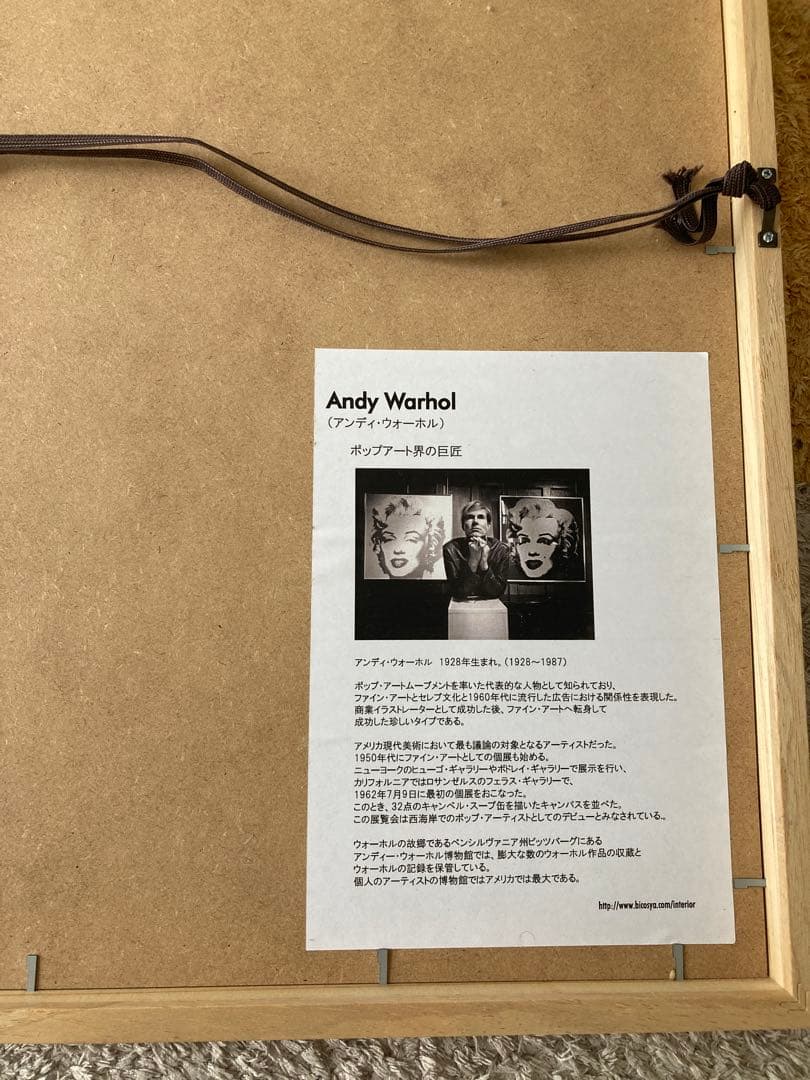 Andy Warhol
（アンディ・ウォーホル）
ポップアート界の巨匠
アンディ・ウォーホル 1928年生まれ。（1928～1987）
ポップ・アートムーブメントを率いた代表的な人物として知られており、
ファイン・アートとセレブ文化と1960年代に流行した広告における関係性を表現した。
商業イラストレーターとして成功した後、ファイン・アートへ転身して
成功した珍しいタイプである。
アメリカ現代美術において最も議論の対象となるアーティストだった。
1950年代にファイン・アートとしての個展も始める。
ニューヨークのヒューゴ・ギャラリーやボドレイ・ギャラリーで展示を行い、
カリフォルニアではロサンゼルスのフェラス・ギャラリーで、
1962年7月9日に最初の個展をおこなった。
このとき、32点のキャンベル・スープ缶を描いたキャンバスを並べた。
この展覧会は西海岸でのポップ・アーティストとしてのデビューとみなされている。。
ウォーホルの故郷であるペンシルヴァニア州ピッツバーグにある
アンディー・ウォーホル博物館では、膨大な数のウォーホル作品の収蔵と
ウォーホルの記録を保管している。
個人のアーティストの博物館ではアメリカでは最大である。
http://www.bicosya.com/interior